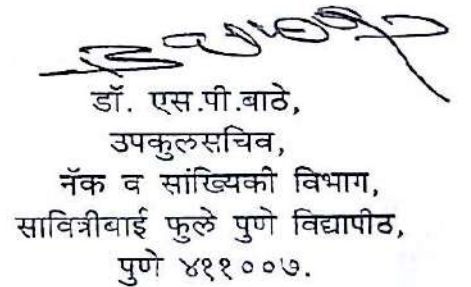 डॉ. एस.पी.बाठे,
उपकुलसचिव,
नॅक व सांख्यिकी विभाग,
सावित्रीबाई फुले पुणे विद्यापीठ,
पुणे ४११००७.